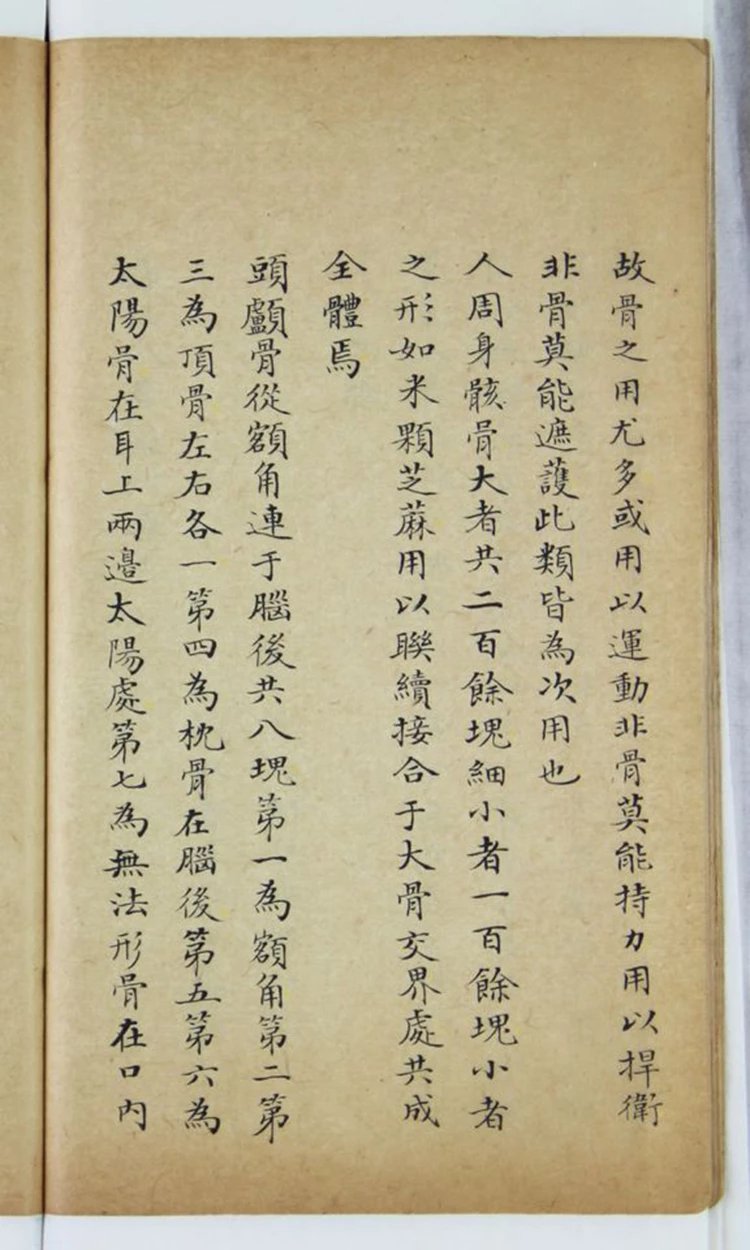 故骨之用尤多或用以運動非骨莫能持力用以捍衛
非骨莫能遮護此類皆為次用也
人周身骸骨大者共二百餘塊細小者一百餘塊小者
之形如米顆芝蔴用以聯續接合于大骨交界處共成
全體焉
頭顱骨從額角連于腦後共八塊第一為額角第二第
三為頂骨左右各一第四為枕骨在腦後第五第六為
太陽骨在耳上兩邉太陽處第七為無法形骨在口內